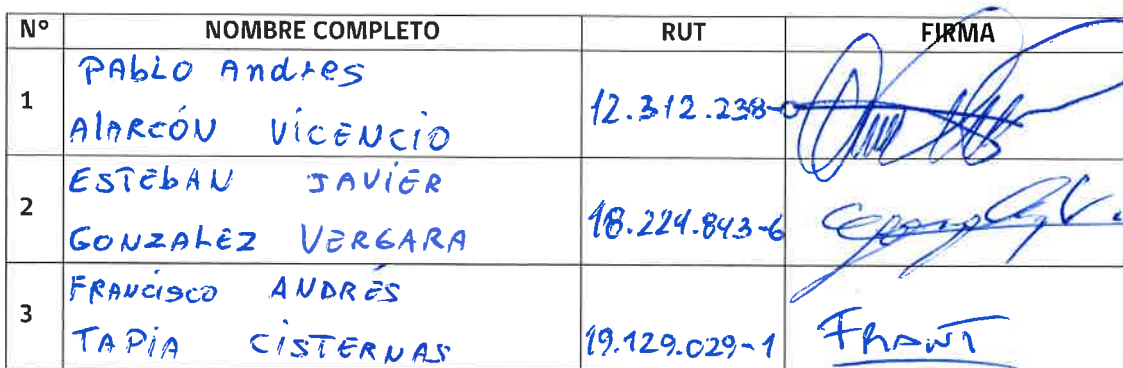 Nº NOMBRE COMPLETO RUT FIRMA
1 PAbLO Andres
AlARCÓN VicENCiO 12.312.238-0
2 ESTEbAN JAViER
GONZALEZ VERGARA 18.224.843-6
3 FRANCisco ANDRÉS
TAPiA CiSTERNAS 19.129.029-1